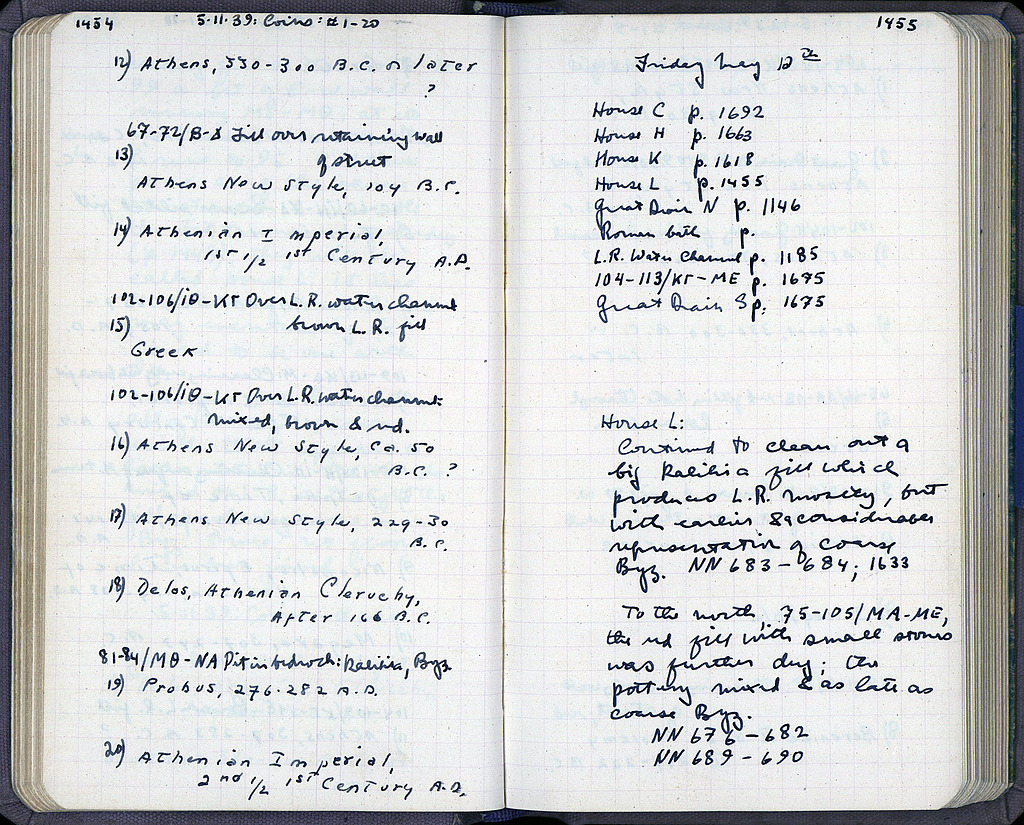 1454
5·11·39: Coins: #1-20
12) Athens, 330-300 B.C. or later
?
67-72/B-Δ Fill over retaining wall
of struct
13)
Athens New Style, 104 B.C.
14) Athenian Imperial,
1st 1/2 1st Century A.D.
102-106/ΙΘ-ΚΓ Over L.R. water channel
brown L.R. fill
15)
Greek
102-106/ΙΘ-ΚΓ Over L.R. water channel:
mixed, brown & red.
16) Athens New Style, ca. 50
B.C. ?
17) Athens New Style, 229-30
B.C.
18) Delos, Athenian Cleruchy,
After 166 B.C.
81-84/ΜΘ-ΝΑ Pit in bedrock: Kalikia, Byz
19) Probus, 276-282 A.D.
20) Athenian Imperial,
2nd 1/2 1st Century A.D.
1455
Friday May 12th
House C p. 1692
House H p. 1663
House K p. 1618
House L p. 1455
Great Drain N p. 1146
Roman bath p.
L.R. Water Channel p. 1185
104-113/ΚΓ-ΜΕ p. 1675
Great Drain S p. 1675
House L:
Continued to clean out a
big Kalikia fill which
produces L.R. mostly, but
with earlier & a considerable
representation of coarse
Byz. NN 683-684; 1633
To the north, 75-105/ΜΑ-ΜΕ,
the red fill with small stones
was further dug; the
pottery mixed & as late as
coarse Byz.
NN 676-682
NN 689-690